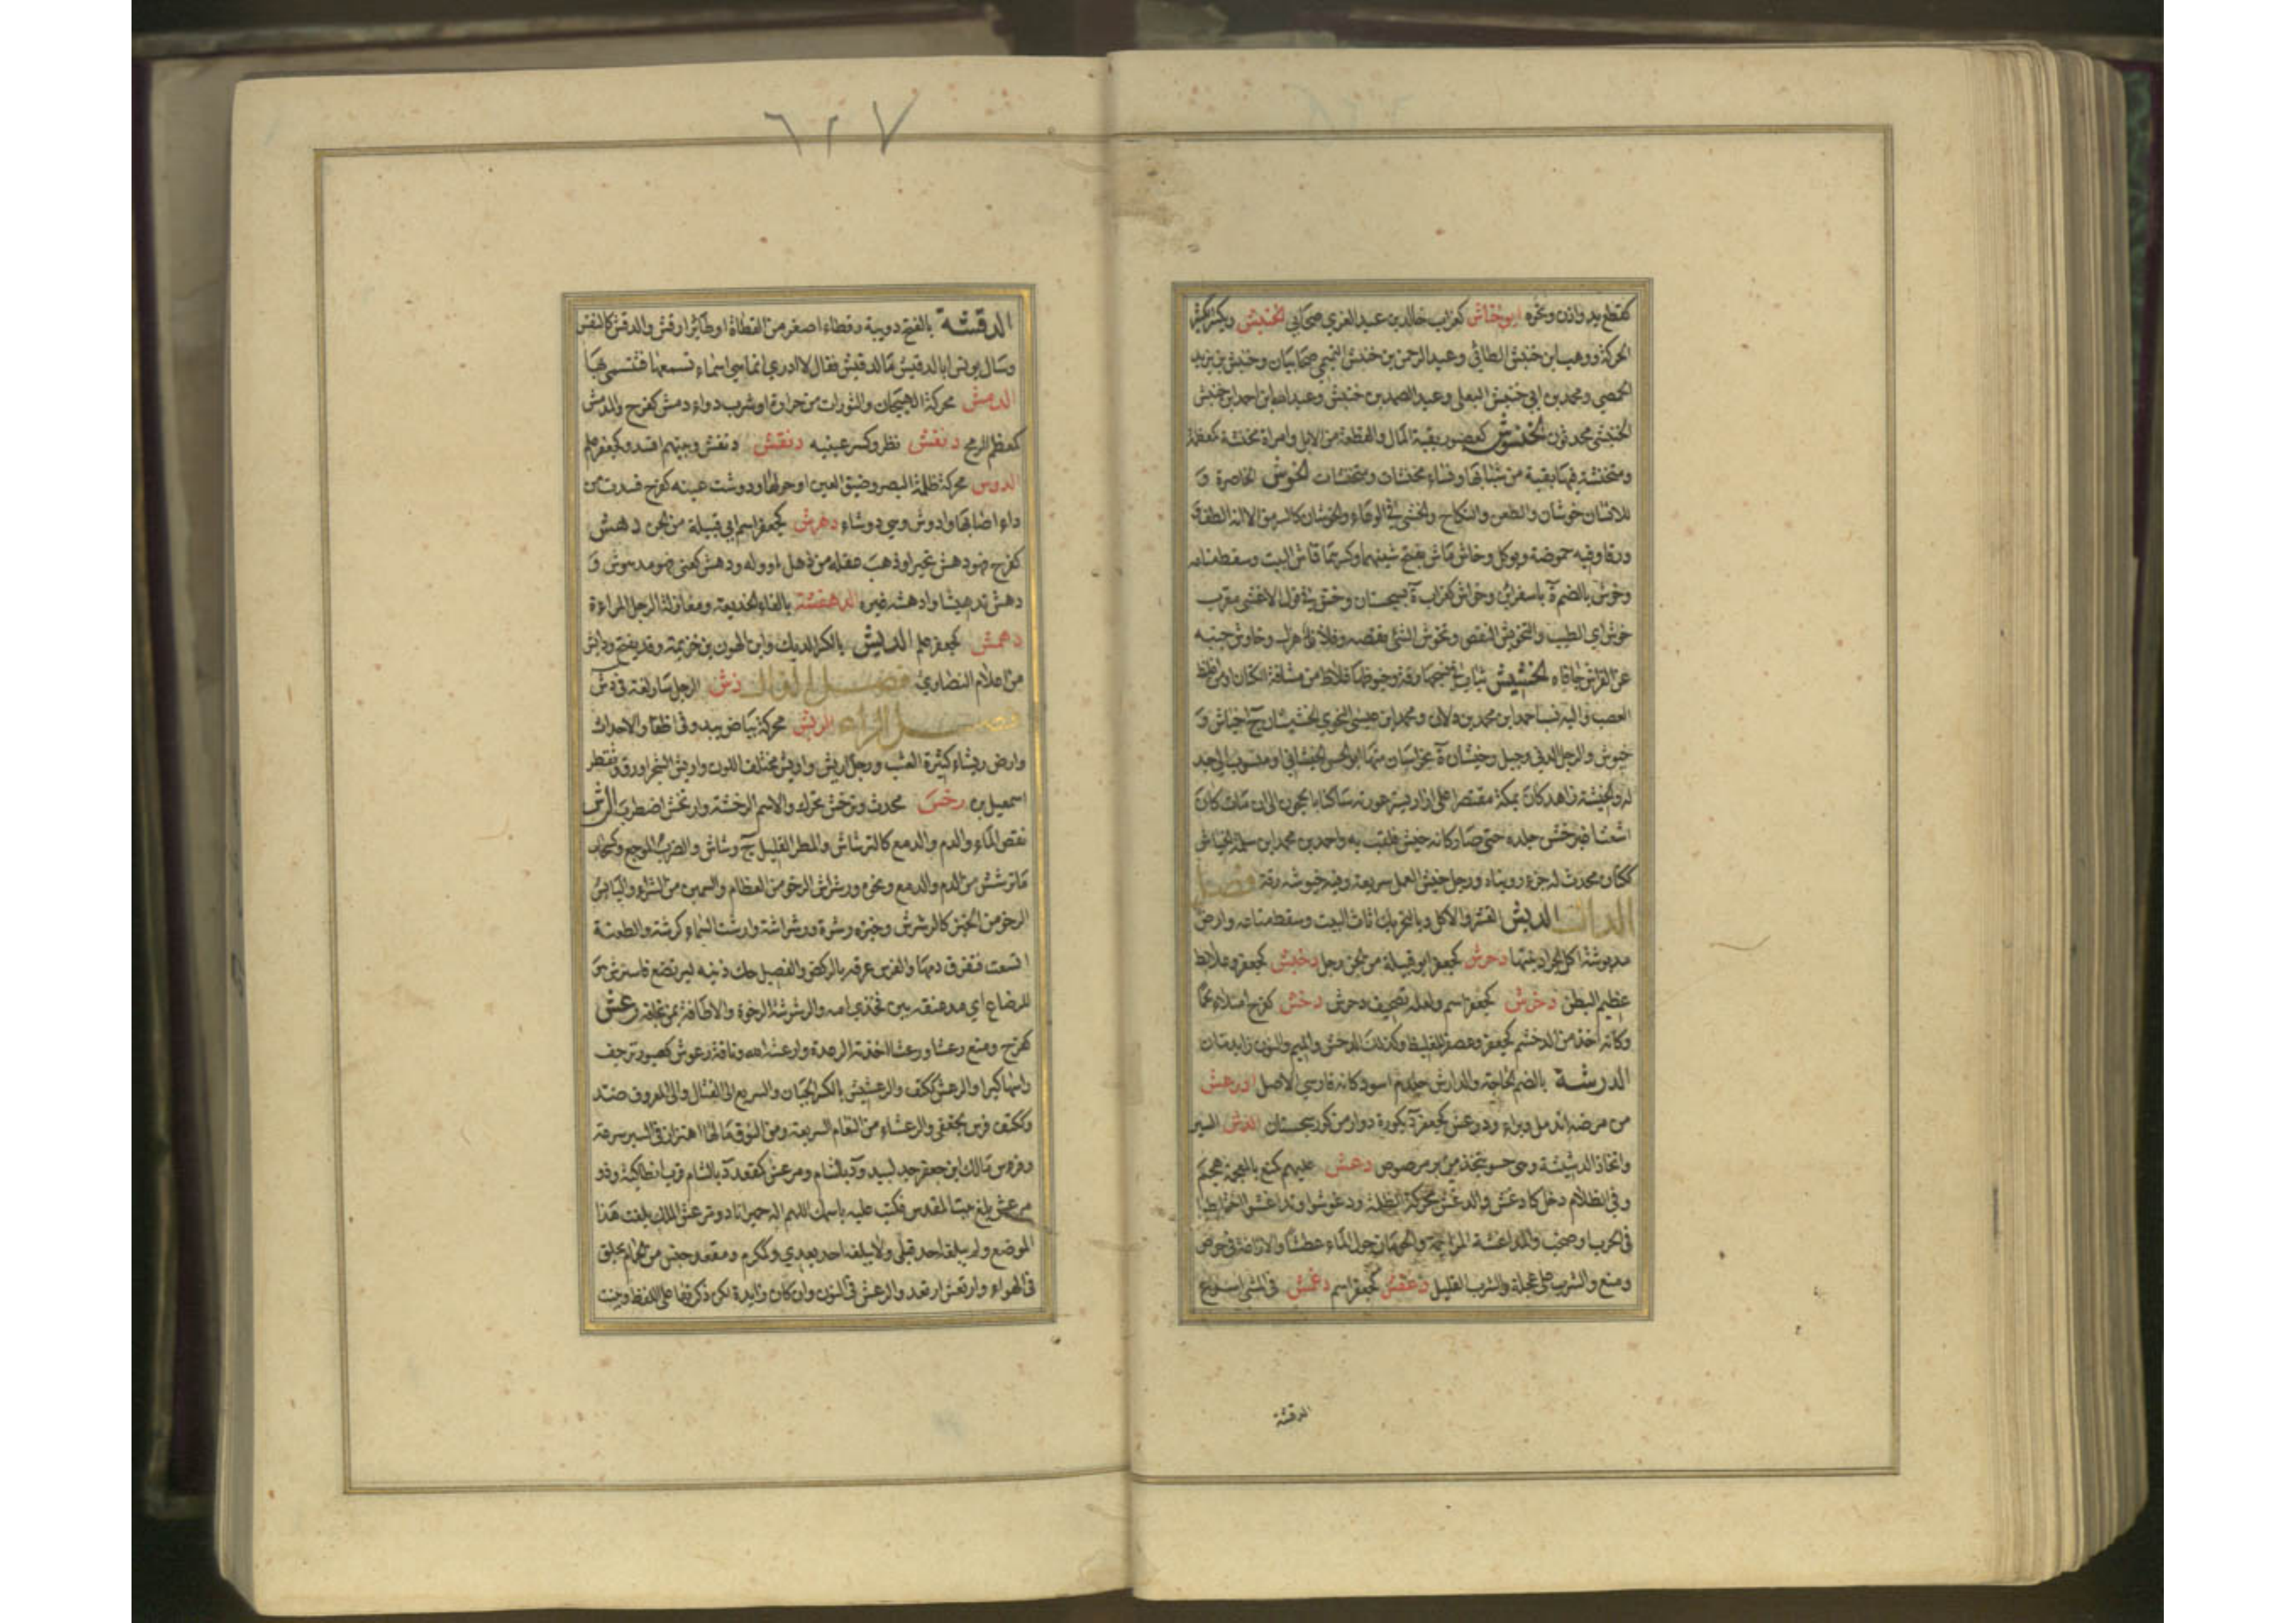 كقطع بد وانن ونحوه ابو خناش كغراب خالد بن عبد العزي صحابي الخنبش ويكسر كثير
الحركة ووهب ابن خنبش الطائي وعبد الرحمن بن خنبش التميمي صحابيان وخنبش بن يزيد
الحمصي ومحمد بن ابي خنبش البعلي وعبد الصمد بن خنبش وعبد الله ابن احمد ابن خنبش
الخنبشي محدثون الخنشوش كعصفور بقية المال والقطعة من الابل وامراة مخنشة كمعظمة
ومتخنشة فيها بقية من شبابها ونساء مخنشات ومتخنشات الخوش الخاصرة و
للانسان خوشان والطعن والنكاح والحثي في الوعاء والخوشان كالسرمق الا انه الطف
ورقا وفيه حموضة ويوكل وخاش ماش بفتح شينهما وكسرهما قاش البيت وسقط متاعه
وخوش بالضم ة باسفراين وخواش كغراب ة بسجستان وخش في قول الاعشى معرب
خوش اي الطيب والتخويش النقص وتخوش الشي نقصه وفلان هزل وخاوش جنبه
عن الفراش جافاه الخيش ثياب في نسجها رقة وخيوطها غلاظ من مشاقة الكتان او من اغلظ
العصب واليه نسب احمد ابن محمد بن دلان ومحمد ابن عيسى النحوي الخيشيان ج اخياش و
خيوش والرجل الدني وجبل وخيشان ة بخراسان منها ابو الحسن الخيشاني او منسوب الى جد
له والخيشة زاهد كان بمكة مقتصرا على ازار يستر عورته ساكنا بالحجون الى ان مات كان
اشعثا فرخش جلده حتى صار كانه خيش فلقب به واحمد بن محمد ابن سلمة الخياش
ككتان محدث له جزء رويناه ورجل خيش العمل سريعه وفيه خيوشة رقة فصل
الدال الدبش القشر والاكل وبالتحريك اثاث البيت وسقط متاعه وارض
مدبوشة اكل الجراد نبتها دحرش كجعفر ابو قبيلة من الجن رجل دخبش كجعفر وعلابط
عظيم البطن دخرش كجعفر اسم ولعله تصحيف دحرش دخش كفرح امتلا لحما
وكانه اخذ من الدخشم كجعفر وعصفر للغليظ وكذلك الدخش والميم والنون زايدتان
الدرشة بالضم اللجاجة والدارش جلد م اسود كانه فارسي الاصل ادرعش
من مرضه اندمل وبراء ودرعش كجعفر ة بكورة دوار من كور سجستان الدش السير
واتخاذ الدشيشة وهي حسو يتخذ من بر مرضوض دغش عليهم كمنع بالمعجمة هجم
وفي الظلام دخل كادغش والدغش محركة الظلمة ودغوشوا وتداغشوا اختلطوا
في الحرب او صخب والمداغشة المزاحمة والحومان حول الماء عطشا والاراغة في حرص
ومنع والشرب على عجلة والشرب القليل دغفش كجعفر اسم دغمش في الشي اسرع
الدقشة
٦٢٧
الدقشة بالفتح دويبة رقطاء اصغر من القطاة او طائر ارقش والدقش كالنقش
وسال يونس ابا الدقيش ما الدقيش فقال لا ادري انما هي اسماء نسمعها فنتسمى بها
الدمش محركة الهيجان والثورات من حرارة او شرب دواء دمش كفرح والدمش
كمعظم الرمح دنفش نظر وكسر عينيه دنقش دنقش وبينهم افسد وكجعفر علم
الدوش محركة ظلمة البصر وضيق العين او حولها ودوشت عينه كفرح فسدت من
داء اصابها وادوش وهي دوشاء دهرش كجعفر اسم ابي قبيلة من الجن دهش
كفرح فهو دهش تحير او ذهب عقله من ذهل او وله ودهش كعني فهو مدهوش و
دهش تدهيشا وادهشه غيره الدهفشة بالفاء الخديعة ومغازلة الرجل المراءة
دهمش كجعفر علم الديش بالكسر الديك وابن الهون بن خزيمة وقد يفتح وداش
من اعلام النصارى فصل الذال ذش الرجل سار لغة في دش
فصل الراء الربش محركة بياض يبدو في اظفار الاحداث
وارض ربشاء كثيرة العشب ورجل اربش واربش مختلف اللون واربش الشجر اورق وتفطر
اسمعيل بن رخش محدث وترخش تحرك والاسم الرخشة وارتخش اضطرب الرش
نفض الماء والدم والدمع كالترشاش والمطر القليل ج رشاش والضرب الموجع وكسحاب
ما ترشش من الدم والدمع ونحوه ورشراش الرخو من العظام والسمين من الشواء واليابس
الرخو من الخبز كالرشرش وخبزة رشرة ورشراشة وارشت السماء كرشت والطعنة
اتسعت فتفرق دمها والفرس عرقه بالركض والفصيل حك ذنبه ليرتضع فاسترش هو
للرضاع اي مد عنقه بين فخذي امه والرشرشة الرخوة والاطافة بمن تخافه رعش
كفرح ومنع رعشا ورعشا اخذته الرعدة وارعشه الله وناقة رعوش كصبور ترجف
راسها كبرا والرعش ككتف والرعشيش بالكسر الجبان والسريع الى القتال والى المعروف ضد
وككتف فرس لجعفي والرعشاء من النعام السريعة ومن النوق ما لها اهتزاز في السير سرعة
وفرس مالك ابن جعفر جد لبيد و ة بالشام ومرعش كمقعد د بالشام قرب انطاكية وذو
مرعش بلغ بيت المقدس فكتب عليه باسمك اللهم اله حمير انا ذو مرعش الملك بلغت هذا
الموضع ولم يبلغه احد قبلي ولا يبلغه احد بعدي وكمكرم ومقعد جنس من الحمام يحلق
في الهواء وارتعش ارتعد والرعش في النون وان كان زايدة لكن ذكرتها على اللفظ وبينت